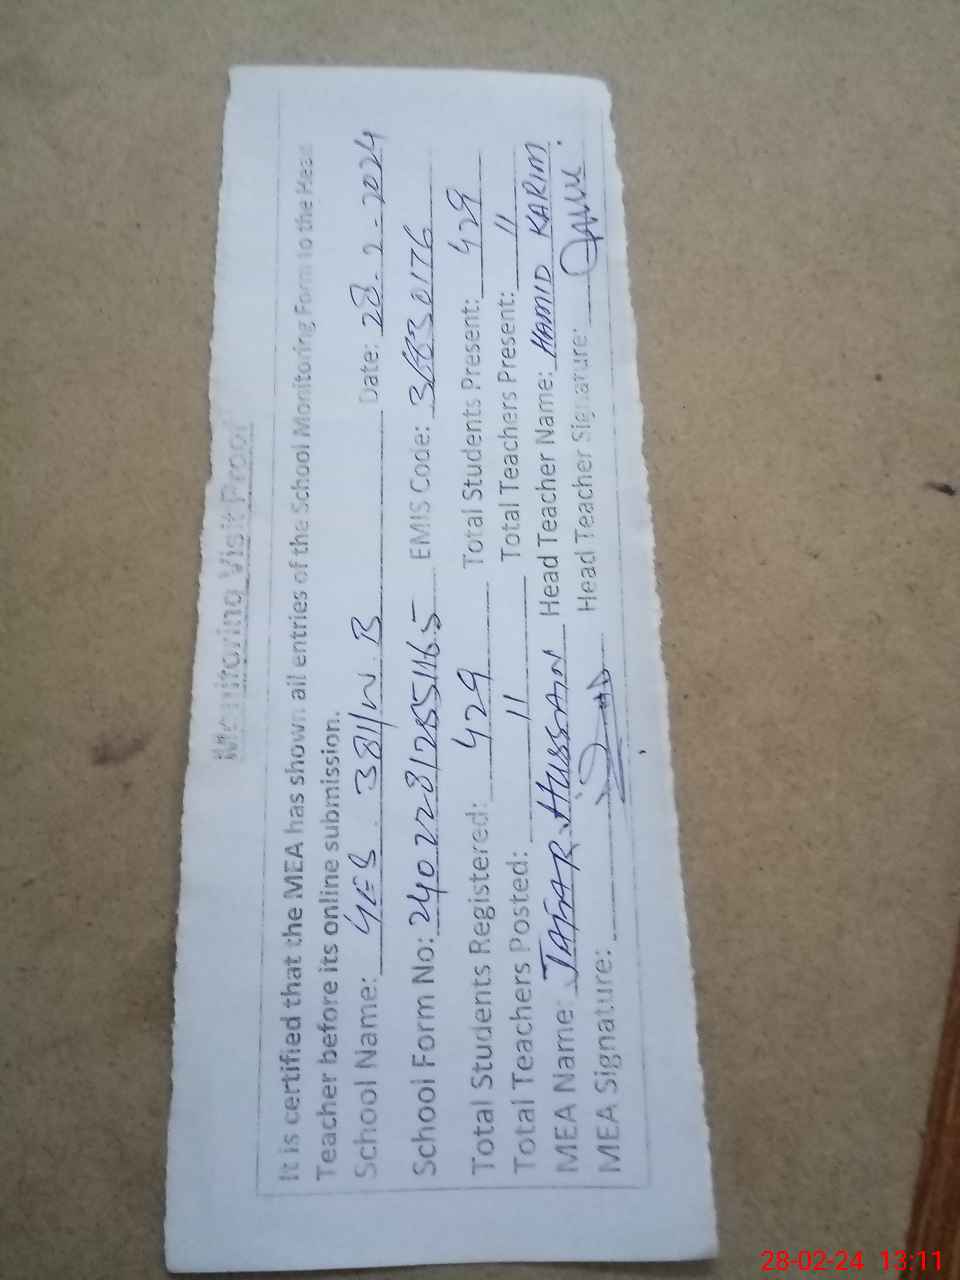 Monitoring Visit Proof
It is certified that the MEA has shown all entries of the School Monitoring Form to the Head
Teacher before its online submission.
School Name: GES 381/W.B Date: 28-2-2024
School Form No: EMIS Code: 36830176
Total Students Registered: 429 Total Students Present: 429
Total Teachers Posted: 11 Total Teachers Present: 11
MEA Name: JAFAR HUSSAIN Head Teacher Name: HAMID KARIM
MEA Signature: Head Teacher Signature:
28-02-24 13:11